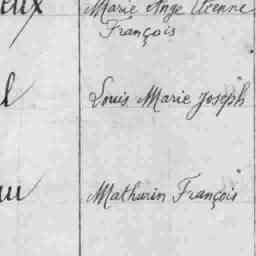 eux Marie Ange Etienne
François
l Louis Marie Joseph
au Mathurin François